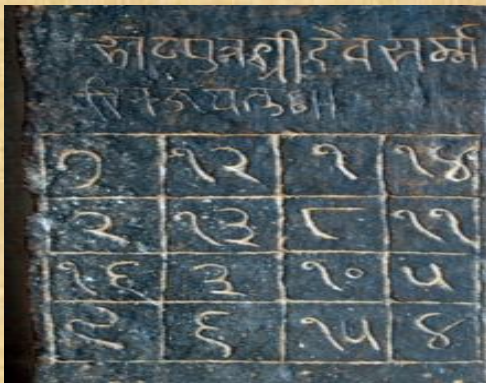 श्रीदेवसर्म्म
७ १२ १ १४
२ १३ ८ ११
१६ ३ १० ५
९ ६ १५ ४